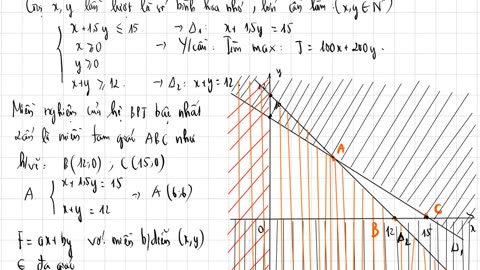 Gọi x, y lần lượt là số bình hoa nhỏ, lớn cần làm (x, y ∈ N*)
x + 1,5y ≤ 15 → Δ₁: x + 1,5y = 15
x ≥ 0 → Y/cầu: Tìm max: T = 100x + 200y.
y ≥ 0
x + y ≥ 12 → Δ₂: x + y = 12
Miền nghiệm của hệ BPT bậc nhất
2 ẩn là miền tam giác ABC như
h/vẽ: B(12;0), C(15,0)
A { x + 1,5y = 15 → A(6;6)
x + y = 12
F = ax + by với miền b/diễn (x,y)
∈ đa giác
y
A
C
O B 12 Δ₂ 15 Δ₁ x